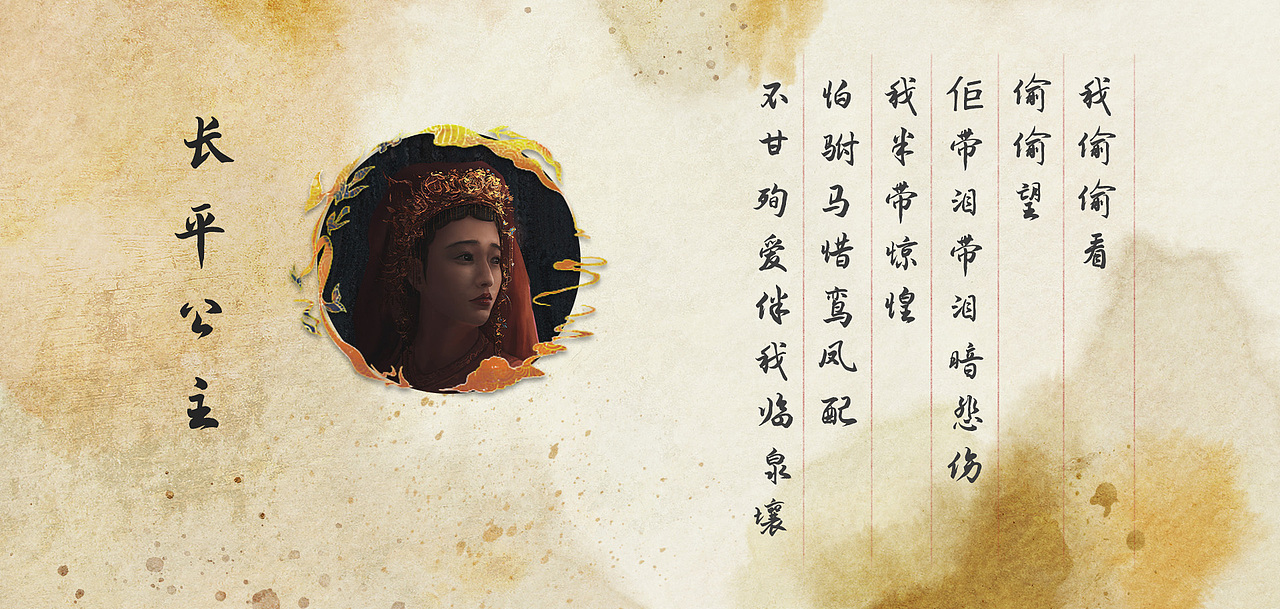 我偷偷看
偷偷望
佢带泪带泪暗悲伤
我半带惊惶
怕驸马惜鸾凤配
不甘殉爱伴我临泉壤
长平公主